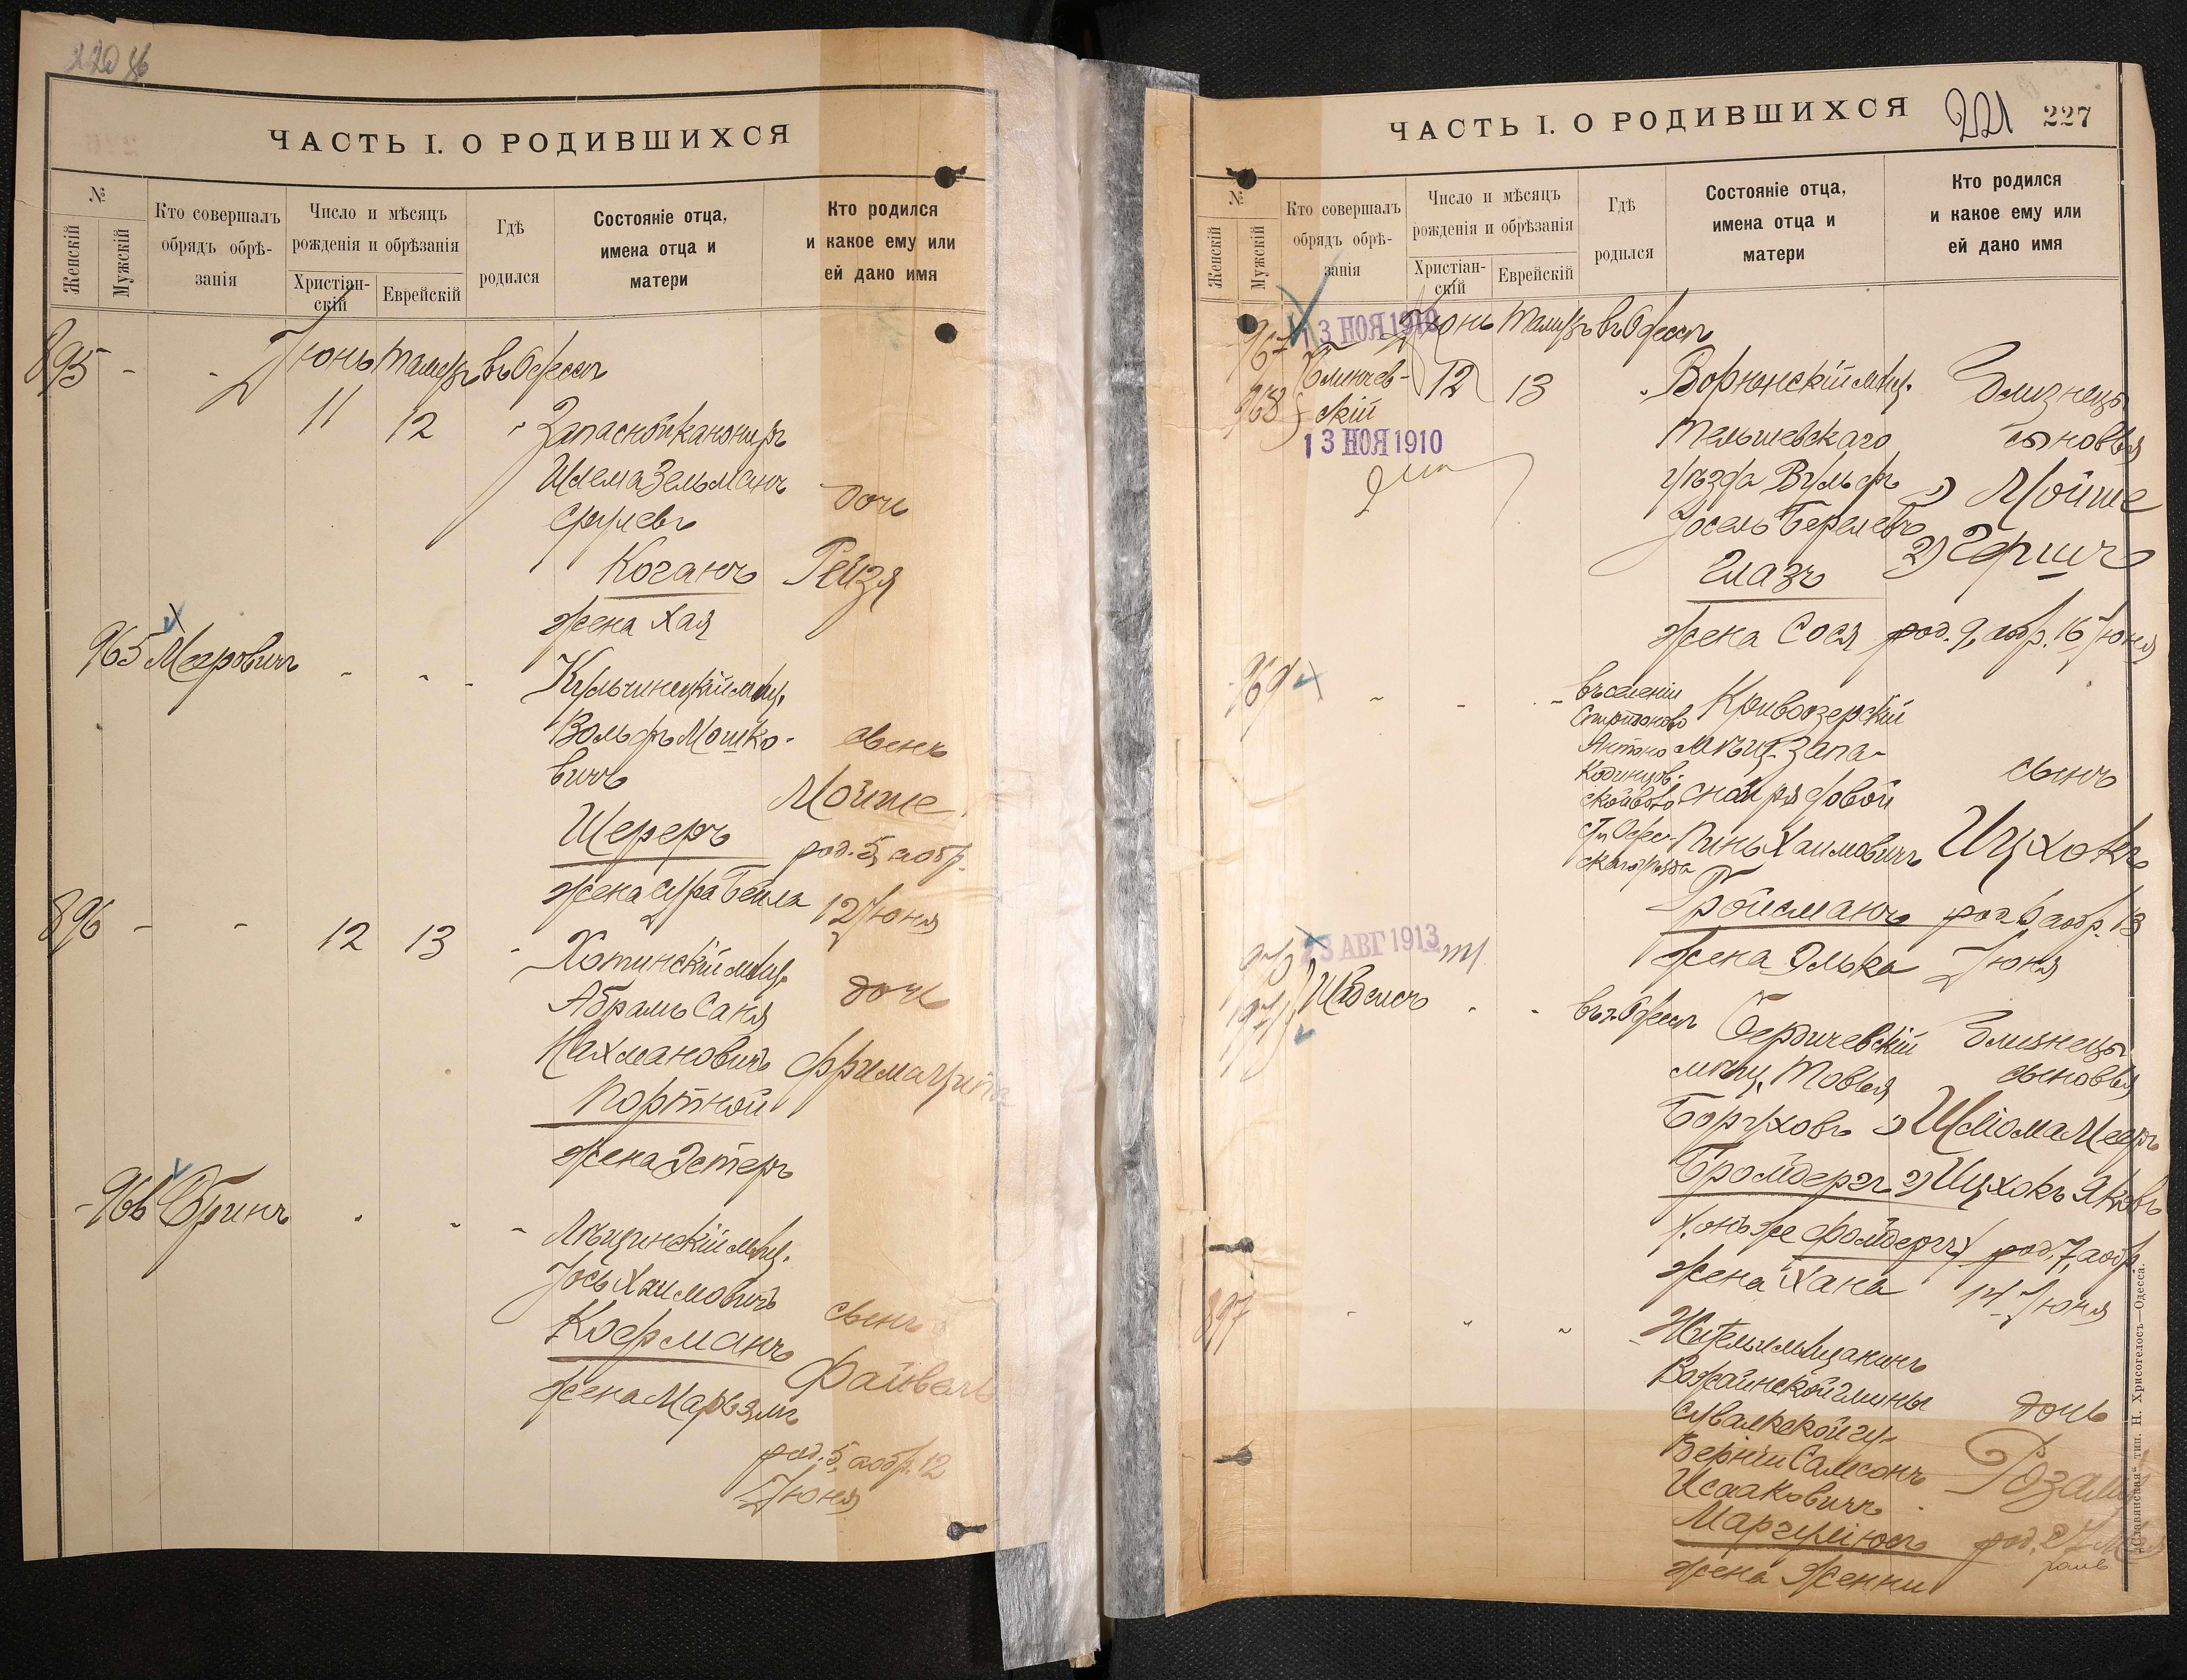 220 об
ЧАСТЬ I. О РОДИВШИХСЯ
№
Женскій
Мужскій
Кто совершалъ
обрядъ обрѣ-
занія
Число и мѣсяцъ
рожденія и обрѣзанія
Христіан-
скій
Еврейскій
Гдѣ
родился
Состояніе отца,
имена отца и
матери
Кто родился
и какое ему или
ей дано имя
895 - - Іюнь Тамузъ въ Одессѣ
11 12 Запасной канониръ
Шлема Зельманъ
Сруlевъ
Коганъ
жена Хая
дочь
Рейзя
965 Мееровичъ
Кульчинецкій мѣщ.
Вольфъ Мошко-
вичъ
Шереръ
жена Сура Бейла
сынъ
Мойше
род. 5, а обр.
12 Іюня
896 - - 12 13
Хотинскій мѣщ.
Абрамъ Саня
Нахмановичъ
Портной
жена Эстеръ
дочь
Фрима
966
мѣщ.
Іось Хаимовичъ
Кофманъ
жена Марьямъ
сынъ
Файвель
род. 5, а обр. 12
Іюня
ЧАСТЬ I. О РОДИВШИХСЯ
221
227
№
Женскій
Мужскій
Кто совершалъ
обрядъ обрѣ-
занія
Число и мѣсяцъ
рожденія и обрѣзанія
Христіан-
скій
Еврейскій
Гдѣ
родился
Состояніе отца,
имена отца и
матери
Кто родился
и какое ему или
ей дано имя
13 НОЯ 1910
Іюнь Тамузъ въ Одессѣ
967
968
скій
13 НОЯ 1910
12 13
Ворненскій мѣщ.
Тельшевскаго
уѣзда Вульфъ
Іосель Берелевъ
Глазъ
жена Сося
близнецы
сыновья
1) Мойше
2) Гершъ
род. 9, а обр. 16 Іюня
969
въ селеніи
Кривоозерскій
мѣщ. запа-
сной рядовой
Пинь Хаимовичъ
Гройсманъ
жена Элька
сынъ
Ицхокъ
род. 6 а обр. 13
Іюня
23 АВГ 1913
970
971
въ г. Одессѣ
Бердичевскій
мѣщ. Товья
Боруховъ
Бромбергъ
(онъ же Фомбергъ)
жена Хана
близнецы
сыновья
1) Шлома Мееръ
2) Ицхокъ Яковъ
род. 7, а обр.
14 Іюня
897
Житель и мѣщанинъ
гмины
Сувалкской гу-
берніи Самсонъ
Исааковичъ
Маргуліюсъ
жена Женни
дочь
род. 27 Мая
„Славянская“ тип. Н. Хрисогелосъ—Одесса.